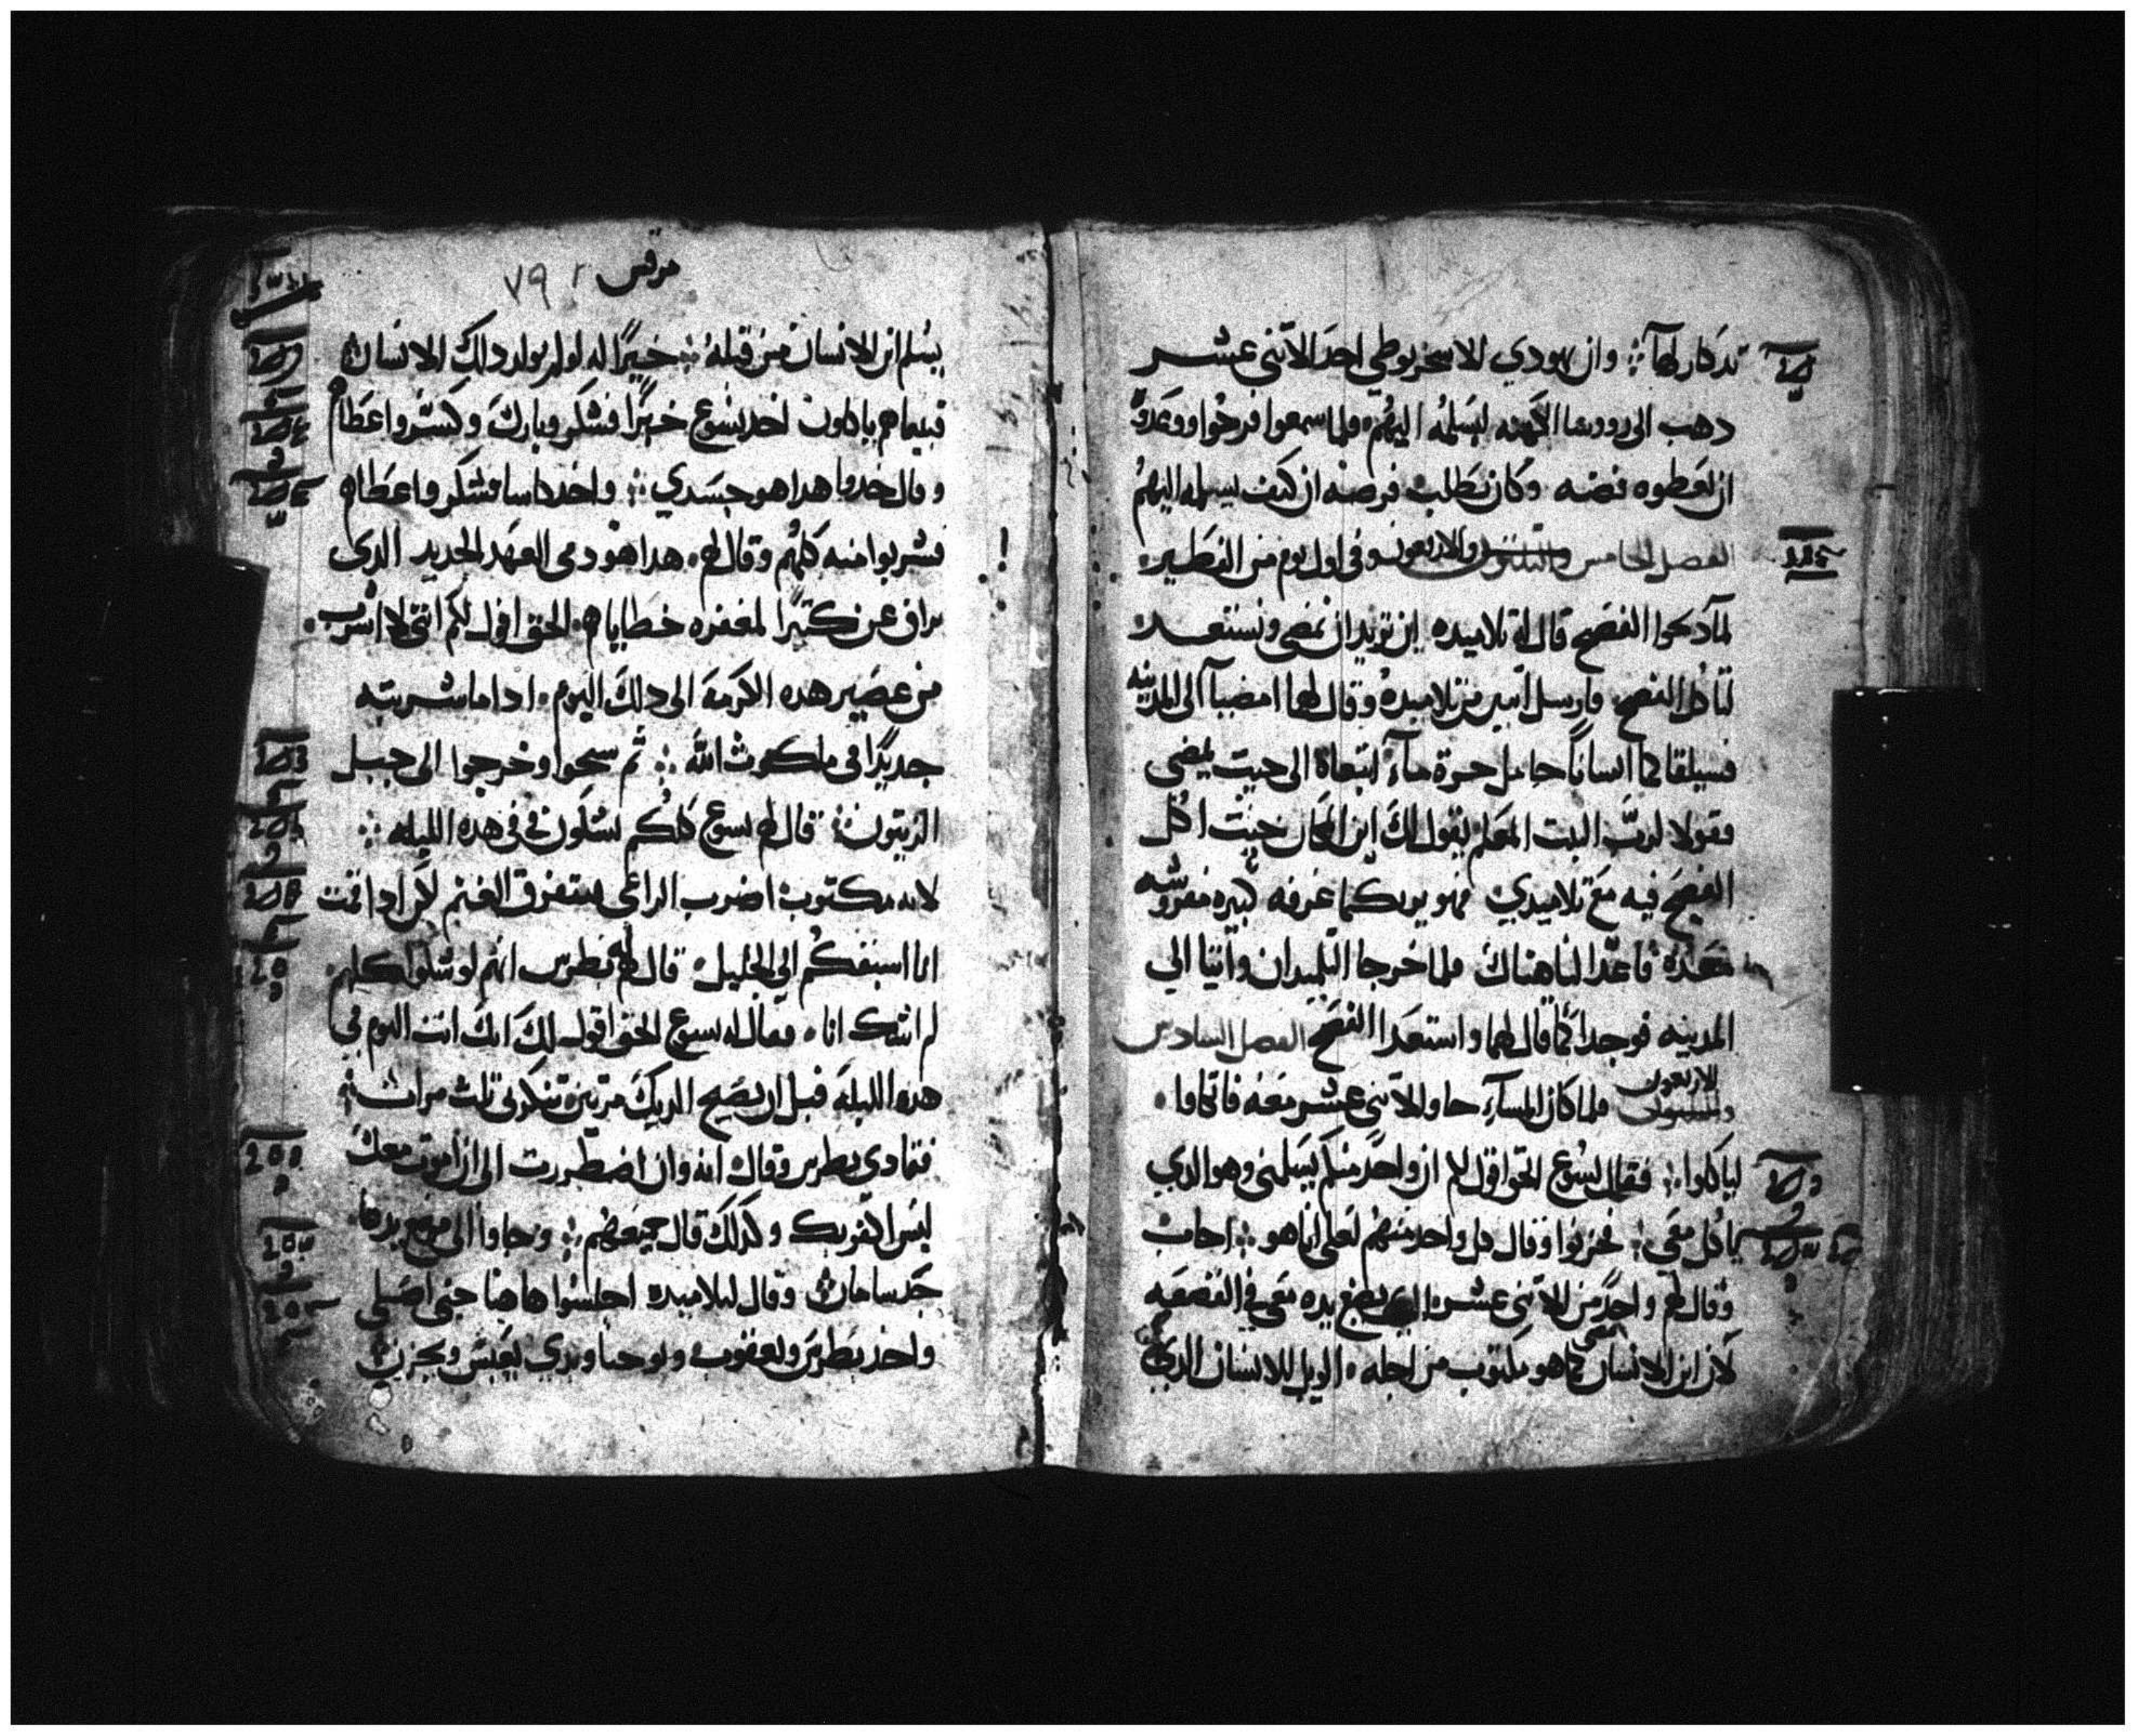 تدكار لها ܀ وان يهودي الاسخريوطي احد الاثنى عشر
دهب الى رووسا الكهنه ليسلمه اليهم ، فلما سمعوا فرحوا ووعدوه
ان يعطوه فضه ، وكان يطلب فرصه ان كيف يسلمه اليهم
الفصل الخامس والاربعون وفى اول يوم من الفطير
لما دبحوا الفصح قال له تلاميده اين تريد ان نمضى ونستعد
لتاكل الفصح . فارسل اتنين من تلاميده وقال لهما امضيا الى المدينه
فسيلقاكما انسانًا حامل جرة ماء اتبعاه الى حيت يمضى
فقولا لرب البيت المعلم يقول لك اين المكان حيت اكل
الفصح فيه مع تلاميدي فهو يريكما غرفه كبيره مفروشه
معده فاعدا لنا هناك فلما خرجا التلميدان واتيا الي
المدينه فوجدا كما قال لهما واستعدا الفصح الفصل السادس
والاربعون فلما كان المساء جا والاتنى عشر معه فاتكاوا ،
لياكلوا ܀ فقال يسوع الحق اقول لكم ان واحدً منكم يسلمنى وهو الدي
ياكل معى ܀ فحزنوا وقال كل واحد منهم لعلى انا هو ܀ اجاب
وقال لهم واحدً من الاتنى عشر الدي يصبغ يده معى فى القصعه
لان ابن الانسان يمضى كما هو مكتوب من اجله ، الويل للانسان الدي
مرقس ٧٩
يسلم ابن الانسان من قبله ܀ خيرًا له لو لم يولد دلك الانسان
فبينما هم ياكلون اخد يسوع خبزًا فشكر وبارك وكسر واعطاهم
وقال خدوا هدا هو جسدي ܀ واخد كاسا فشكر واعطاهم
فشربوا منه كلهم وقال لهم ، هدا هو دمى العهد الجديد الدى
يراق عن كتيرًا لمغفره خطاياهم ، الحق اقول لكم اننى لا اشرب
من عصير هده الكرمه الى دلك اليوم ، ادا ما شربته
جديدًا فى ملكوت الله ܀ تم سبحوا وخرجوا الى جبل
الزيتون ܀ قال لهم يسوع كلكم تشكون فى فى هده الليله ܀
لانه مكتوب اضرب الراعى فتتفرق الغنم لكن ادا قمت
انا اسبقكم الي الجليل . قال له بطرس انهم لو شكوا كلهم ،
لم اشك انا ، فقال له يسوع الحق اقول لك انك انت اليوم في
هده الليله قبل ان يصيح الديك مرتين تنكرنى تلت مرات ܀
فتمادى بطرس وقال انه وان اضطررت الى ان اموت معك
ليس اكفر بك وكدلك قال جميعهم ܀ وجاوا الى موضع يدعا
جدسامان وقال لتلاميده اجلسوا هاهنا حتى اصلى
واخد بطرس ويعقوب ويوحنا وبدي يعبس ويحزن